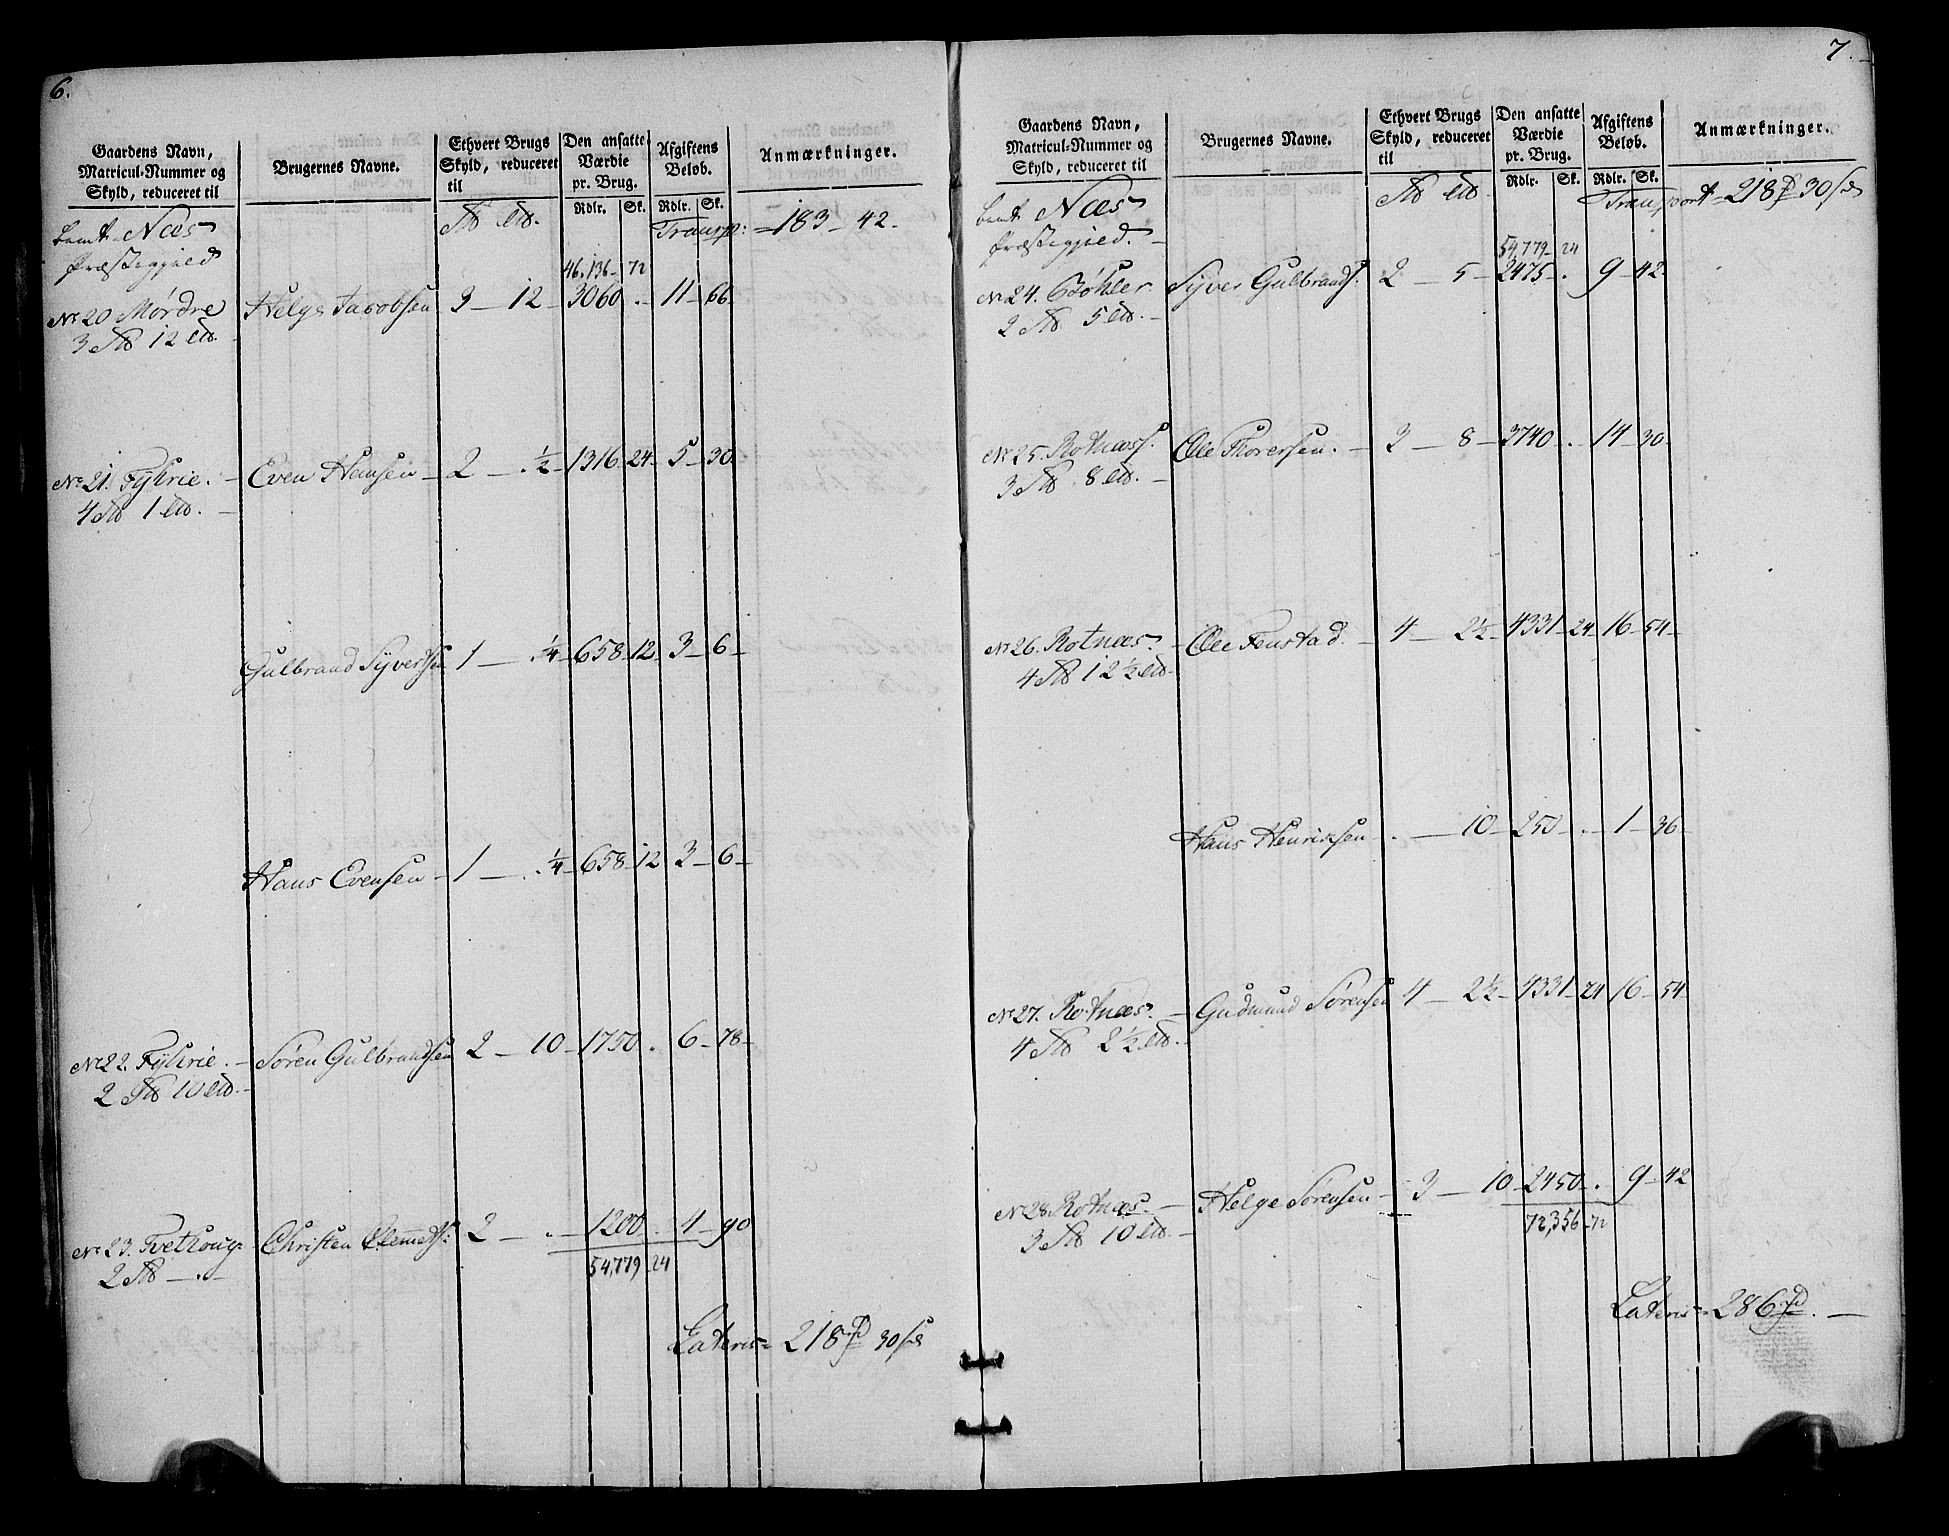 6.
Gaardens Navn, Matricul-Nummer og Skyld, reduceret til
Brugernes Navne.
Ethvert Brugs Skyld, reduceret til
Den ansatte Værdie pr. Brug.
Afgiftens Beløb.
Anmærkninger.
Rdlr. Sk. Rdlr. Sk.
Næs Transp: = 183 - 42.
Præstegield
46,136 - 72
No 20 Mørdre Helge Jacobsen 3 - 12 - 3060 - . - 11 - 66
3 12
No 21. Even Hansen - 2 - . ½ - 1316 - 24 - 5 - 30
4 1
Gulbrand Syversen 1 - . ¼ - 658 - 12 - 3 - 6 -
Hans Evensen - 1 - . ¼ - 658 - 12 3 - 6 -
No 22. Søren Gulbrandsen 2 - 10 - 1750 . 6 - 78 -
2 10
No 23. Tvethoug: Christen Clemets: 2 - . - 1200 . 4 - 90
2 - . -
54,779 - 24
Lateris = 218 rd 30 s
7.
Gaardens Navn, Matricul-Nummer og Skyld, reduceret til
Brugernes Navne.
Ethvert Brugs Skyld, reduceret til
Den ansatte Værdie pr. Brug.
Afgiftens Beløb.
Anmærkninger.
Rdlr. Sk. Rdlr. Sk.
Næs Transport = 218 30
Præstegjeld. -
54,779 - 24
No 24. Bøhler Syver Gulbrands. 2 - 5 - 2475 - . 9 - 42
2 5
No 25. Rotnæs. Ole Thoresen. - 3 - 8 - 3740 - . 14 - 30
3 8
No 26. Rotnæs. - Ole Fenstad - 4 - 2½ - 4331 - 24 - 16 - 54 -
4 12½
Hans Henrixsen - . - 10 - 250 - . - 1 - 36
No 27. Rotnæs. - Gudmund Sørensen 4 - 2½ - 4331 - 24 16 - 54 -
4 2½
No 28. Rotnæs. - Helge Sørensen - 3 - 10 - 2450 - . 9 - 42
3 10
72,356 - 72
Lateris = 286 rd. -